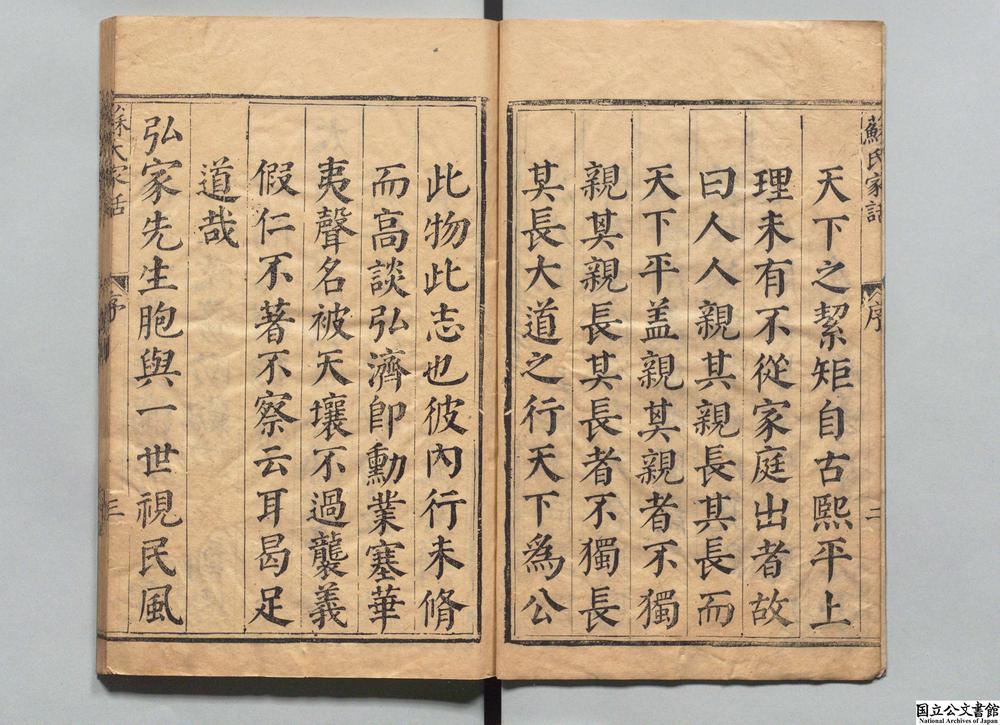 蘇氏家語
序
二
天下之絜矩自古熙平上
理未有不從家庭出者故
曰人人親其親長其長而
天下平盖親其親者不獨
親其親長其長者不獨長
其長大道之行天下爲公
此物此志也彼內行未脩
而高談弘濟卽勳業塞華
夷聲名被天壤不過襲義
假仁不著不察云耳曷足
道哉
弘家先生胞與一世視民風
序
三
国立公文書館
National Archives of Japan